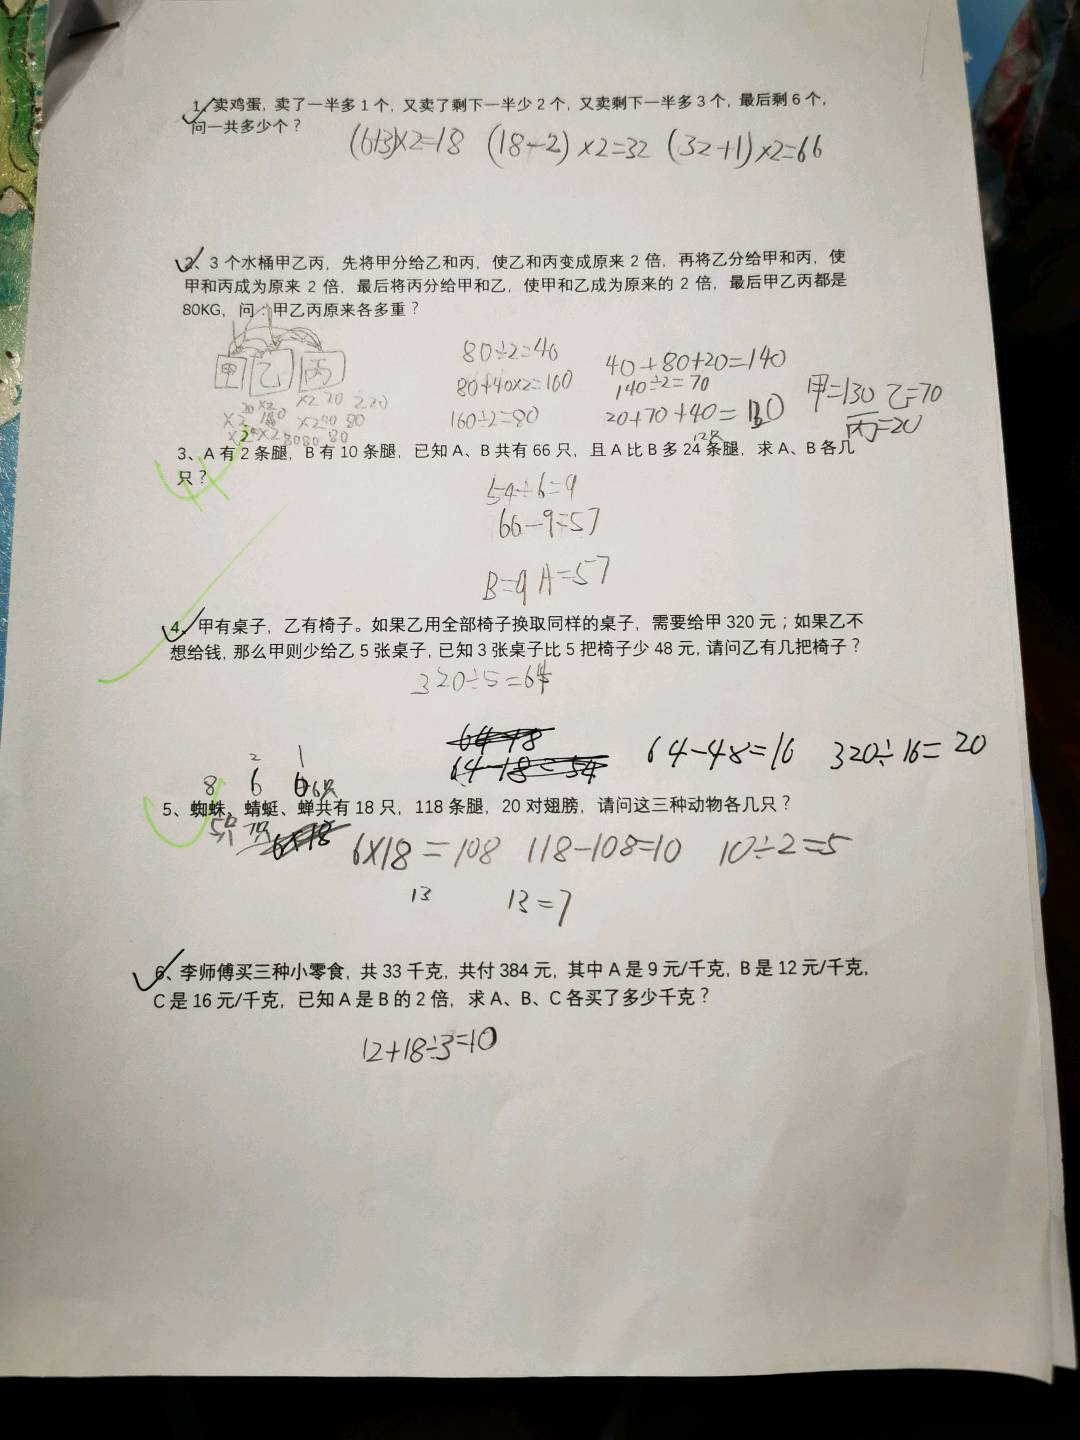 1、卖鸡蛋，卖了一半多1个，又卖了剩下一半少2个，又卖剩下一半多3个，最后剩6个，
问一共多少个？
(6+3)×2=18 (18-2)×2=32 (32+1)×2=66
2、3个水桶甲乙丙，先将甲分给乙和丙，使乙和丙变成原来2倍，再将乙分给甲和丙，使
甲和丙成为原来2倍，最后将丙分给甲和乙，使甲和乙成为原来的2倍，最后甲乙丙都是
80KG，问：甲乙丙原来各多重？
甲 乙 丙
80÷2=40 40+80+20=140
80+40×2=160 140÷2=70 甲=130 乙=70
160÷2=80 20+70+40=130 丙=20
3、A有2条腿，B有10条腿，已知A、B共有66只，且A比B多24条腿，求A、B各几
只？
54÷6=9
66-9=57
B=9 A=57
4、甲有桌子，乙有椅子。如果乙用全部椅子换取同样的桌子，需要给甲320元；如果乙不
想给钱，那么甲则少给乙5张桌子，已知3张桌子比5把椅子少48元，请问乙有几把椅子？
320÷5=64
64-48=16 320÷16=20
2 1
8 6 6 6只
5、蜘蛛、蜻蜓、蝉共有18只，118条腿，20对翅膀，请问这三种动物各几只？
5只 7只 6×18 6×18=108 118-108=10 10÷2=5
13 13=7
6、李师傅买三种小零食，共33千克，共付384元，其中A是9元/千克，B是12元/千克，
C是16元/千克，已知A是B的2倍，求A、B、C各买了多少千克？
12+18÷3=10